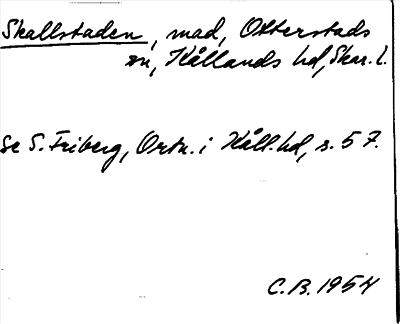 Skallstaden, mad, Otterstads
sn, Kållands hd, Skar. l.
Se S. Friberg, Ortn. i Kåll. hd, s. 57.
C.B. 1954